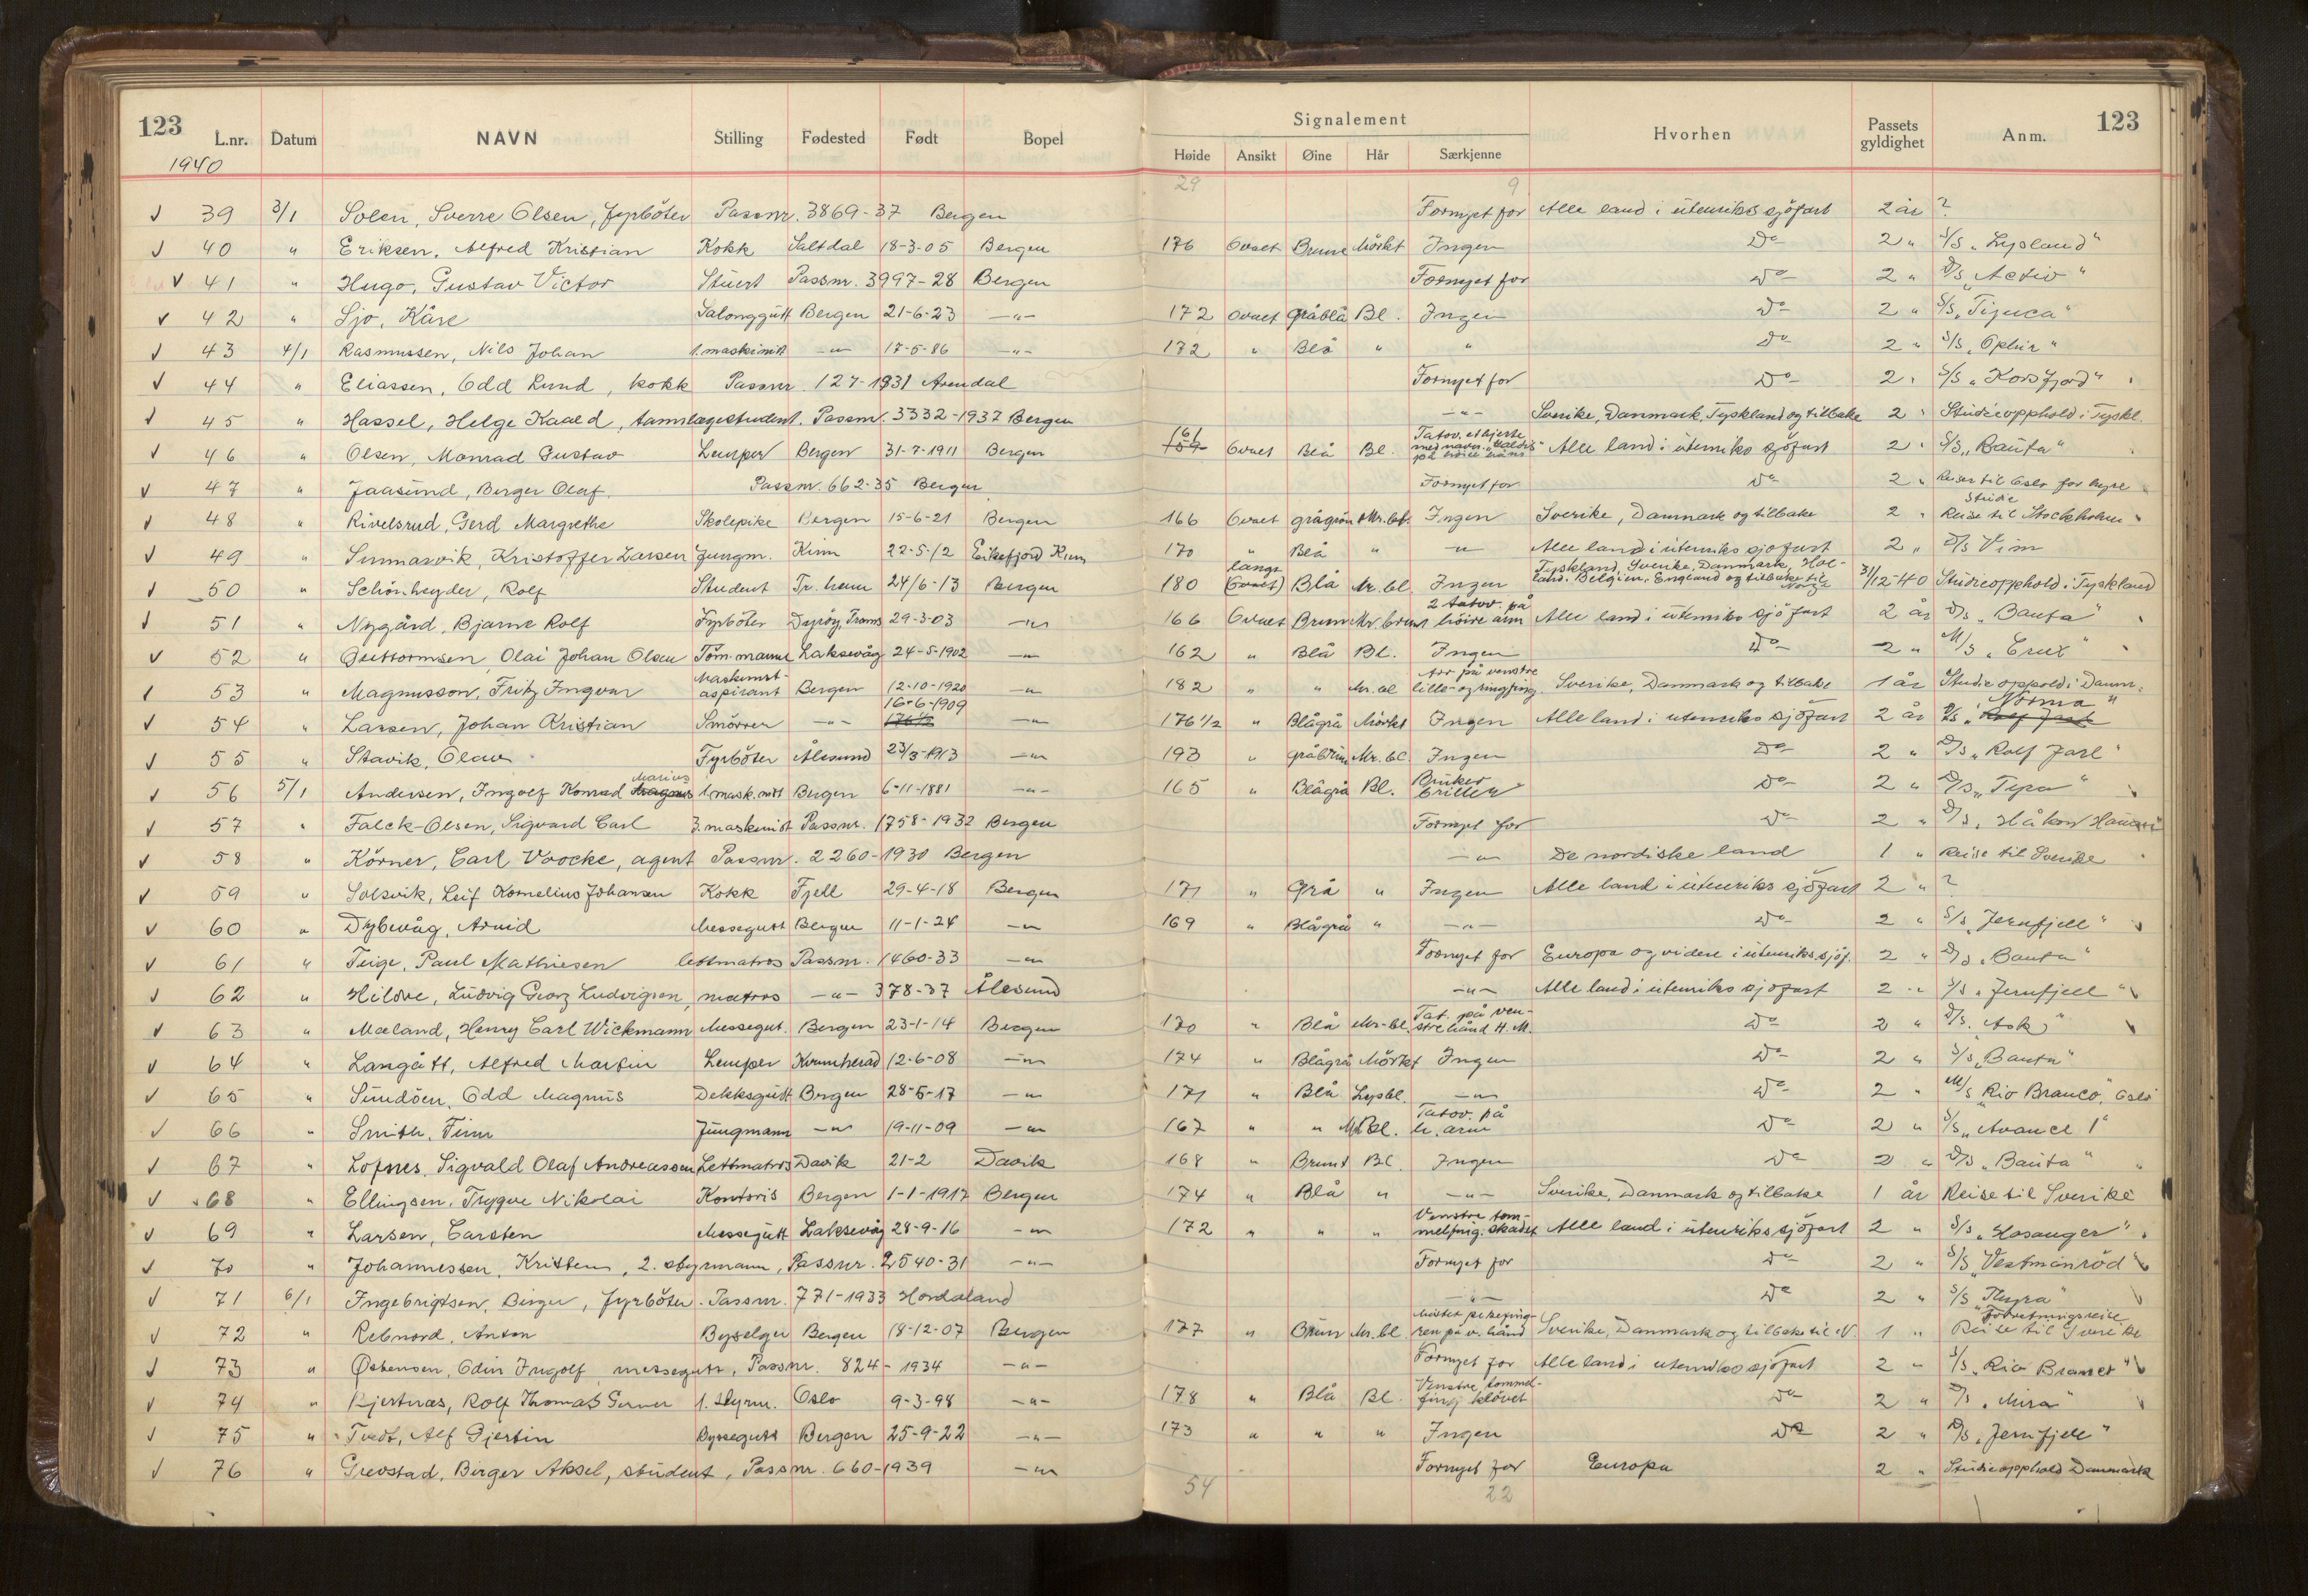 123
L.nr. Datum NAVN Stilling Fødested Født Bopel
Signalement
Høide Ansikt Øine Hår Særkjenne Hvorhen Passets gyldighet Anm.
123
1940
29 9
39 3/1 Solen, Sverre Olsen, Fyrböter Passnr. 3869-37 Bergen Fornyet for Alle land i utenriks sjöfart 2 år ?
40 " Eriksen, Alfred Kristian Kokk Saltdal 18-3-05 Bergen 176 Ovalt Brune Mörkt Ingen Do 2 " S/S "Lysland"
41 " Hugo, Gustav Victor Stuert Passnr. 3997-28 Bergen Fornyet for Do 2 " D/S "Activ"
42 " Sjo, Kåre Salonggutt Bergen 21-6-23 -"- 172 Ovalt gråblå Bl. Ingen Do 2 " S/S "Tijuca"
43 4/1 Rasmussen, Nils Johan 1.maskinist -"- 17-5-86 -"- 172 " Blå " " Do 2 " S/S "Ophir"
44 " Eliassen, Odd Lund, kokk Passnr. 127-1931 Arendal Fornyet for Do 2 " S/S "Korsfjord"
45 " Hassel, Helge Kaald, tannlægestudent. Passnr. 3332-1937 Bergen -"- Sverike, Danmark, Tyskland og tilbake 2 " Studieopphold i Tyskl.
46 " Olsen, Monrad Gustav Lemper Bergen 31-7-1911 Bergen 161 Ovalt Blå Bl. Tatov. et hjerte med navn på Alle land i utenriks sjöfart 2 " S/S "Bauta"
47 " Jaasund, Berger Olaf. Passnr. 662-35 Bergen Fornyet for Do 2 " Reiser til Oslo for hyre
48 " Rivelsrud, Gerd Margrethe Skolepike Bergen 15-6-21 Bergen 166 Ovalt grågrön Mr. bl. Ingen Sverike, Danmark og tilbake 2 " Studie Reise til Stockholm
49 " Kristoffer Larsen Jungm. Kinn 22-5-12 Eikefjord Kinn 170 " Blå " " Alle land i utenriks sjöfart 2 " D/S Vim
50 " Schönheyder, Rolf Student Tr.heim 24/6-13 Bergen 180 langt (Ovalt) Blå Mr. bl. Ingen Tyskland, Sverike, Danmark, Holland, Belgien, England og tilbake til Norge 31/12-40 Studieopphold i Tyskland
51 " Nygård, Bjarne Rolf Fyrböter Dyröy, Troms 29-3-03 -"- 166 Ovalt Brun Mr. brunt 2 tatov. på höire arm Alle land i utenriks sjöfart 2 år D/S "Bauta"
52 " Guttormsen Olai Johan Olsen Töm.mann Laksevåg 24-5-1902 -"- 162 " Blå Bl. Ingen Do 2 " M/S "Crux"
53 " Magnusson, Fritz Ingvar Maskinist-aspirant Bergen 12-10-1920 -"- 182 " " Mr. bl Arr på venstre lille- og ringfing. Sverike, Danmark og tilbake 1 år Studieoppold i Danm.
54 " Larsen, Johan Kristian Smörrer -"- 16-6-1909 176 1/2 -"- 176 1/2 " Blågrå Mörkt Ingen Alle land i utenriks sjöfart 2 år D/S "Norma" Rolf Jarl
55 " Stavik, Olav Fyrböter Ålesund 23/3-1913 -"- 193 " gråbrun Mr. bl. Ingen Do 2 " D/S "Rolf Jarl"
56 5/1 Andersen, Ingolf Konrad Marius Magnus 1. mask.nist Bergen 6-11-1881 -"- 165 " Blågrå Bl. Bruker briller Do 2 " D/S "Tyra"
57 " Falck-Olsen, Sigvard Carl 3.maskinist Passnr. 1758-1932 Bergen Fornyet for Do 2 " D/S "Håkon
58 " Körner, Carl Voocke, agent Passnr. 2260-1930 Bergen -"- De nordiske land 1 " Reise til Sverike
59 " Solsvik, Leif Kornelius Johansen Kokk Fjell 29-4-18 Bergen 171 " Grå " Ingen Alle land i utenriks sjöfart 2 " ?
60 " Dybevåg, Arvid Messegutt Bergen 11-1-24 -"- 169 " Blågrå " -"- Do 2 " S/S "Jernfjell"
61 " Teige, Paul Mathiesen lettmatros Passnr. 1460-33 -"- Fornyet for Europa og videre i utenriks sjöf. 2 " D/S "Bauta"
62 " Hildre, Ludvig Georg Ludvigson, matros -"- 378-37 Ålesund -"- Alle land i utenriks sjöfart 2 " S/S "Jernfjell"
63 " Mæland, Henry Carl Wickmann Messegut. Bergen 23-1-14 Bergen 170 " Blå Mr-bl. Tat. på venstre hånd H.M. Do 2 " D/S. Ask
64 " Langått, Alfred Martin Lemper Kvinnherad 12-6-08 -"- 174 " Blågrå Mörkt Ingen Do 2 " S/S "Bauta"
65 " Sundöen, Odd Magnus Dekksgutt Bergen 28-5-17 -"- 171 " Blå Lysbl. -"- Do 2 " M/S "Rio Branco", Oslo
66 " Smith, Finn Jungmann -"- 19-11-09 -"- 167 " " M.Bl. Tatov. på h. arm Do 2 " S/S "Avance 1"
67 " Lofnes, Sigvald Olaf Andreassen Lettmatros Davik 21-2 Davik 168 " Brunt Bl. Ingen Do 2 " D/S "Bauta"
68 " Ellingsen, Trygve Nikolai Kontoris Bergen 1-1-1917 Bergen 174 " Blå " -"- Sverike, Danmark og tilbake 1 år Reise til Sverike
69 " Larsen, Carsten Messegutt Laksevåg 28-9-16 -"- 172 " " " Venstre tommelfing. skadet Alle land i utenriks sjöfart 2 " S/S "Hosanger"
70 " Johannessen, Kristen, 2. styrmann, Passnr. 2540-31 -"- Fornyet for Do 2 " S/S "Vestmanröd"
71 6/1 Ingebrigtsen, Birger, fyrböter. Passnr. 771-1933 Hordaland -"- Do 2 " S/S "Thyra"
72 " Rebnord, Anton Byselger Bergen 18-12-07 Bergen 177 " Brun Mr. bl. Mistet pekefingren på v. hånd Sverike, Danmark og tilbake til N. 1 " Forretningsreise Reise til Sverike
73 " Østensen, Odin Ingolf messegutt, Passnr. 824-1934 -"- Fornyet for Alle land i utenriks sjöfart 2 " S/S "Rio
74 " Kjertnæs, Rolf Thomas 1. styrm. Oslo 9-3-98 -"- 178 " Blå Bl. Venstre tommelfing klövet Do 2 " D/S "Mira"
75 " Tvedt, Alf Gjertin Byssegutt Bergen 25-9-22 -"- 173 " " " Ingen Do 2 " D/S "Jernfjell"
76 " Grevstad, Birger Aksel, student, Passnr. 660-1939 -"- Fornyet for Europa 2 " Studieopphold Danmark
54 22